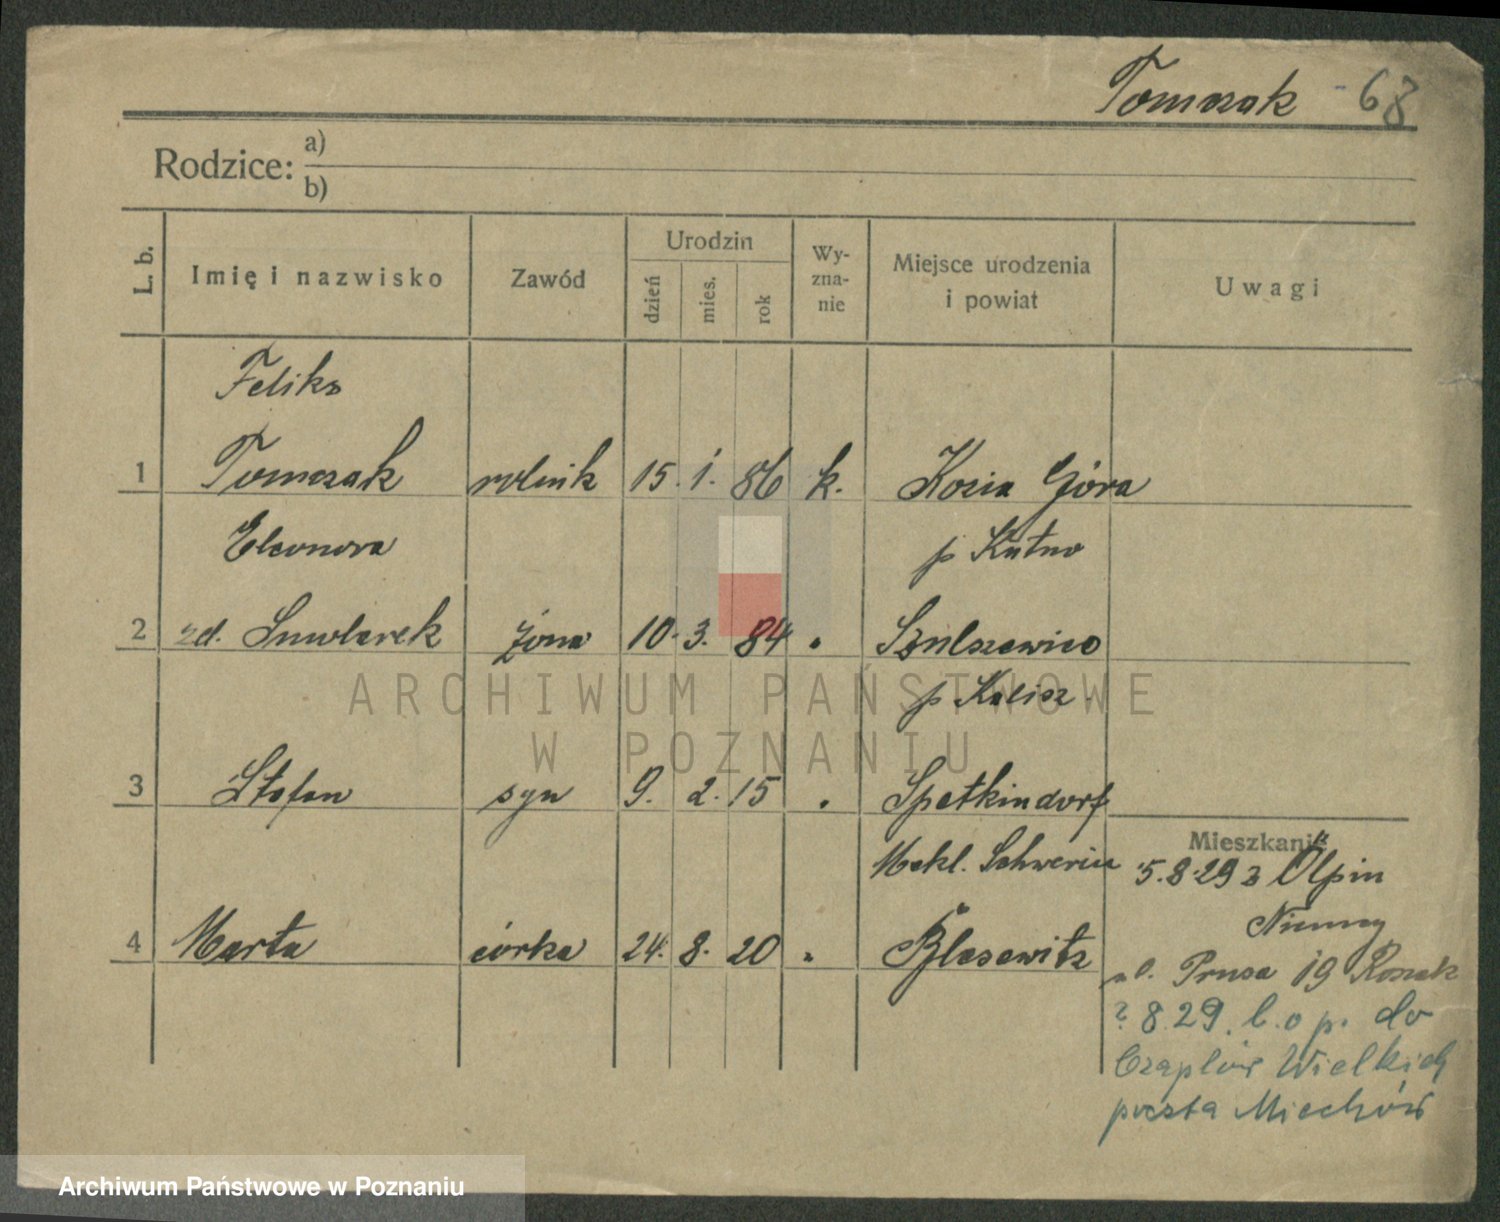 Tomczak - 68
Rodzice: a)
b)
L. b. Imię i nazwisko Zawód Urodzin dzień mies. rok Wy-zna-nie Miejsce urodzenia i powiat Uwagi
Feliks
1 Tomczak rolnik 15. 1. 86 k. Kozia Góra
Eleonora p Kutno
2 zd. Smolarek żona 10. 3. 84 "
p Kalisz
3 Stefan syn 9. 2. 15 " Spetkindorf
Mieszkanie
Mekl. Schwerin 5.8.29 z Ölpin
Niemcy
4 Marta córka 24. 8. 20 " Blesewitz
ul. Prusa 19
? 8.29. b.o p. do
Czaplów Wielkich
poczta Miechów
ARCHIWUM PAŃSTWOWE
W POZNANIU
Archiwum Państwowe w Poznaniu